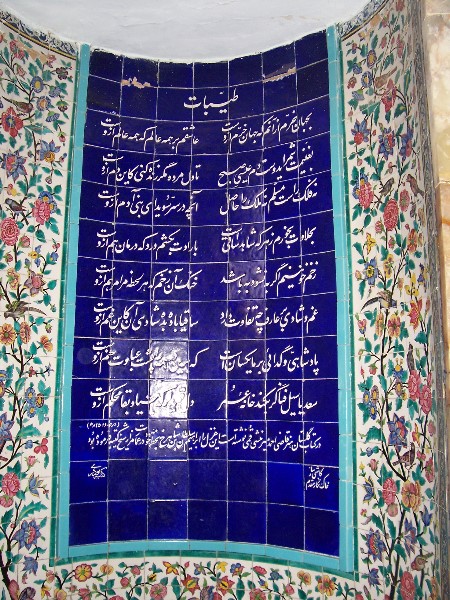 طیبات
بجهان خرم از آنم که جهان خرم ازوست عاشقم بر همه عالم که همه عالم ازوست
بغنیمت شمر ای دوست دم عیسی صبح تا دل مرده مگر زنده کنی کاین دم ازوست
نه فلک راست مسلم نه ملک را حاصل آنچه در سر سویدای بنی آدم ازوست
بحلاوت بخورم زهر که شاهد ساقیست بارادت بکشم درد که درمان هم ازوست
زخم خونینم اگر به نشود به باشد خنک آن زخم که هر لحظه مرا مرهم ازوست
غم و شادی بر عارف چه تفاوت دارد ساقیا باده بده شادی آن کاین غم ازوست
پادشاهی و گدائی بر ما یکسان است که برین در همه را پشت عبادت خم ازوست
سعدیا سیل فنا گر بکند خانه عمر دل قوی دار که بنیاد بقا محکم ازوست
در کتاب گلستان
کاشی ساز
خاک نگار مقدم